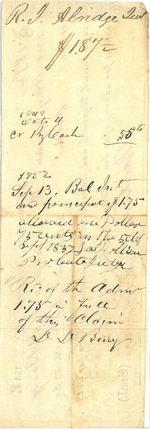 R. J. Aldridge
$1.87½
1849
Octo 4
Cr By Cash 55cts
1852
Sep 13, Bal Int
and principal $1.75
allowed one Dollar
75 cents in the
Sept 1852
Probate Judge
Rec of the Admr
1.75 in full
of this Claim
D. D. Berry